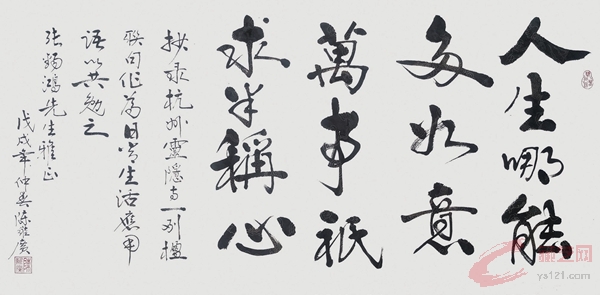 人生哪能
多如意
萬事祇
求半稱心
抄录杭州靈隱寺一列楹
联句作為日常生活應用
語以共勉之
张錫鴻先生雅正
戊戌年仲冬陈維廣
ys121.com